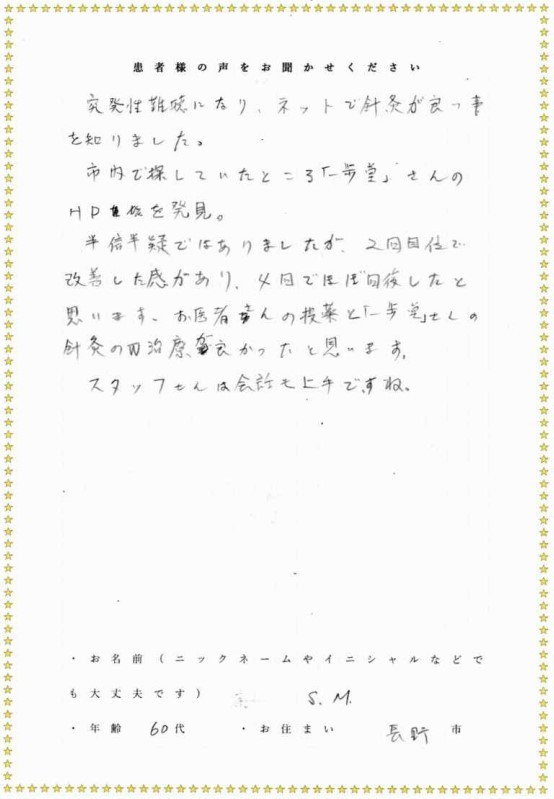 患者様の声をお聞かせください
突発性難聴になり、ネットで針灸が良っ事
を知りました。
市内で探していたところ「一歩堂」さんの
HPを発見。
半信半疑ではありましたが、2回目位で
改善した感があり、4回でほぼ回復したと
思います。お医者さんの投薬と「一歩堂」さんの
針灸の治療が良かったと思います。
スタッフさんは会話も上手ですね。
・お名前(ニックネームやイニシャルなどで
も大丈夫です) S.M.
・年齢 60代 ・お住まい 長野 市